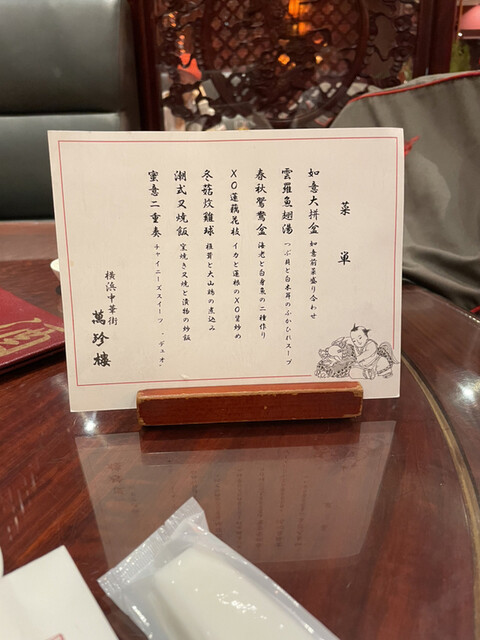 菜單
如意大拼盆 如意前菜盛り合わせ
雲羅魚翅湯 つぶ貝と白木耳のふかひれスープ
春秋鴛鴦盒 海老と白身魚の二種作り
XO蓮藕花枝 イカと蓮根のXO醤炒め
冬菇炆雞球 椎茸と大山鶏の煮込み
潮式叉燒飯 窯焼き叉焼と漬物の炒飯
蜜意二重奏 チャイニーズスイーツ ・デュオ・
横浜中華街
萬珍樓